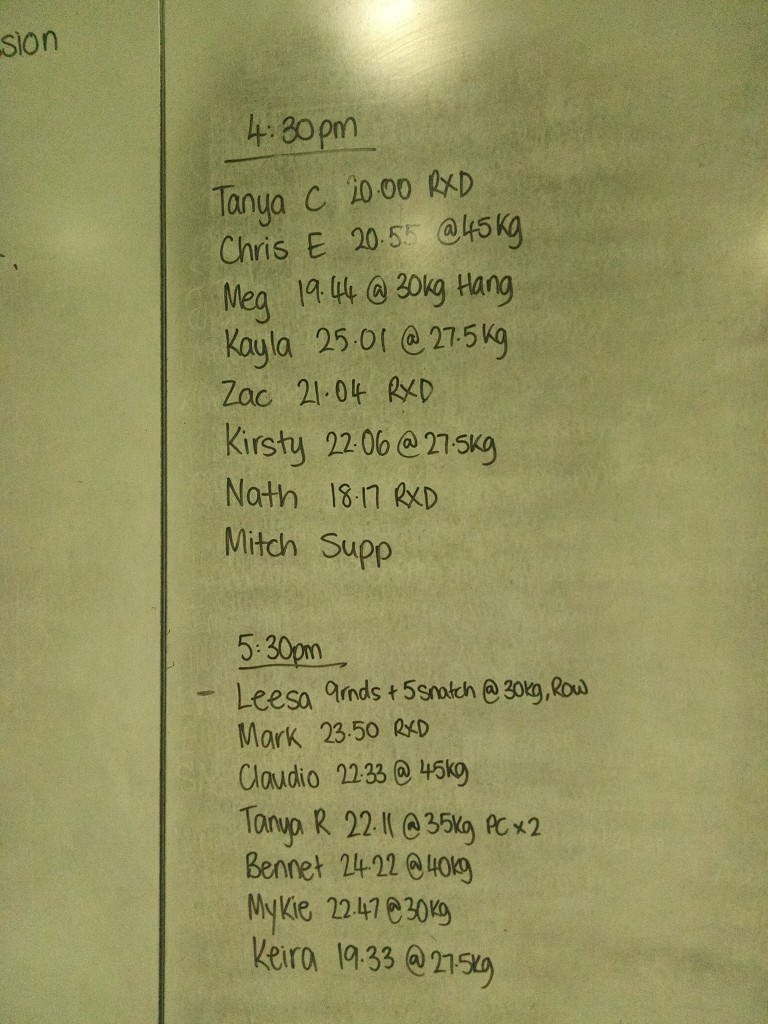 sion
4:30pm
Tanya C 20.00 RXD
Chris E 20.55 @45kg
Meg 19.44 @ 30kg Hang
Kayla 25.01 @ 27.5kg
Zac 21.04 RXD
Kirsty 22.06 @ 27.5kg
Nath 18.17 RXD
Mitch Supp
5:30pm
- Leesa 9rnds + 5 snatch @ 30kg, Row
Mark 23.50 RXD
Claudio 22.33 @ 45kg
Tanya R 22.11 @ 35kg PC x 2
Bennet 24.22 @ 40kg
Mykie 22.47 @ 30kg
Keira 19.33 @ 27.5kg